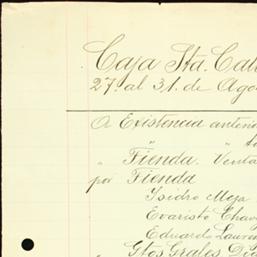 Caja Sta. Cat
27 al 31. de Ago
A Existencia anterio
" " to
" Tienda. Venta
por Tienda
Isidro Moya
Evaristo Chav
Eduardo Laure
" Gtos Grales Di